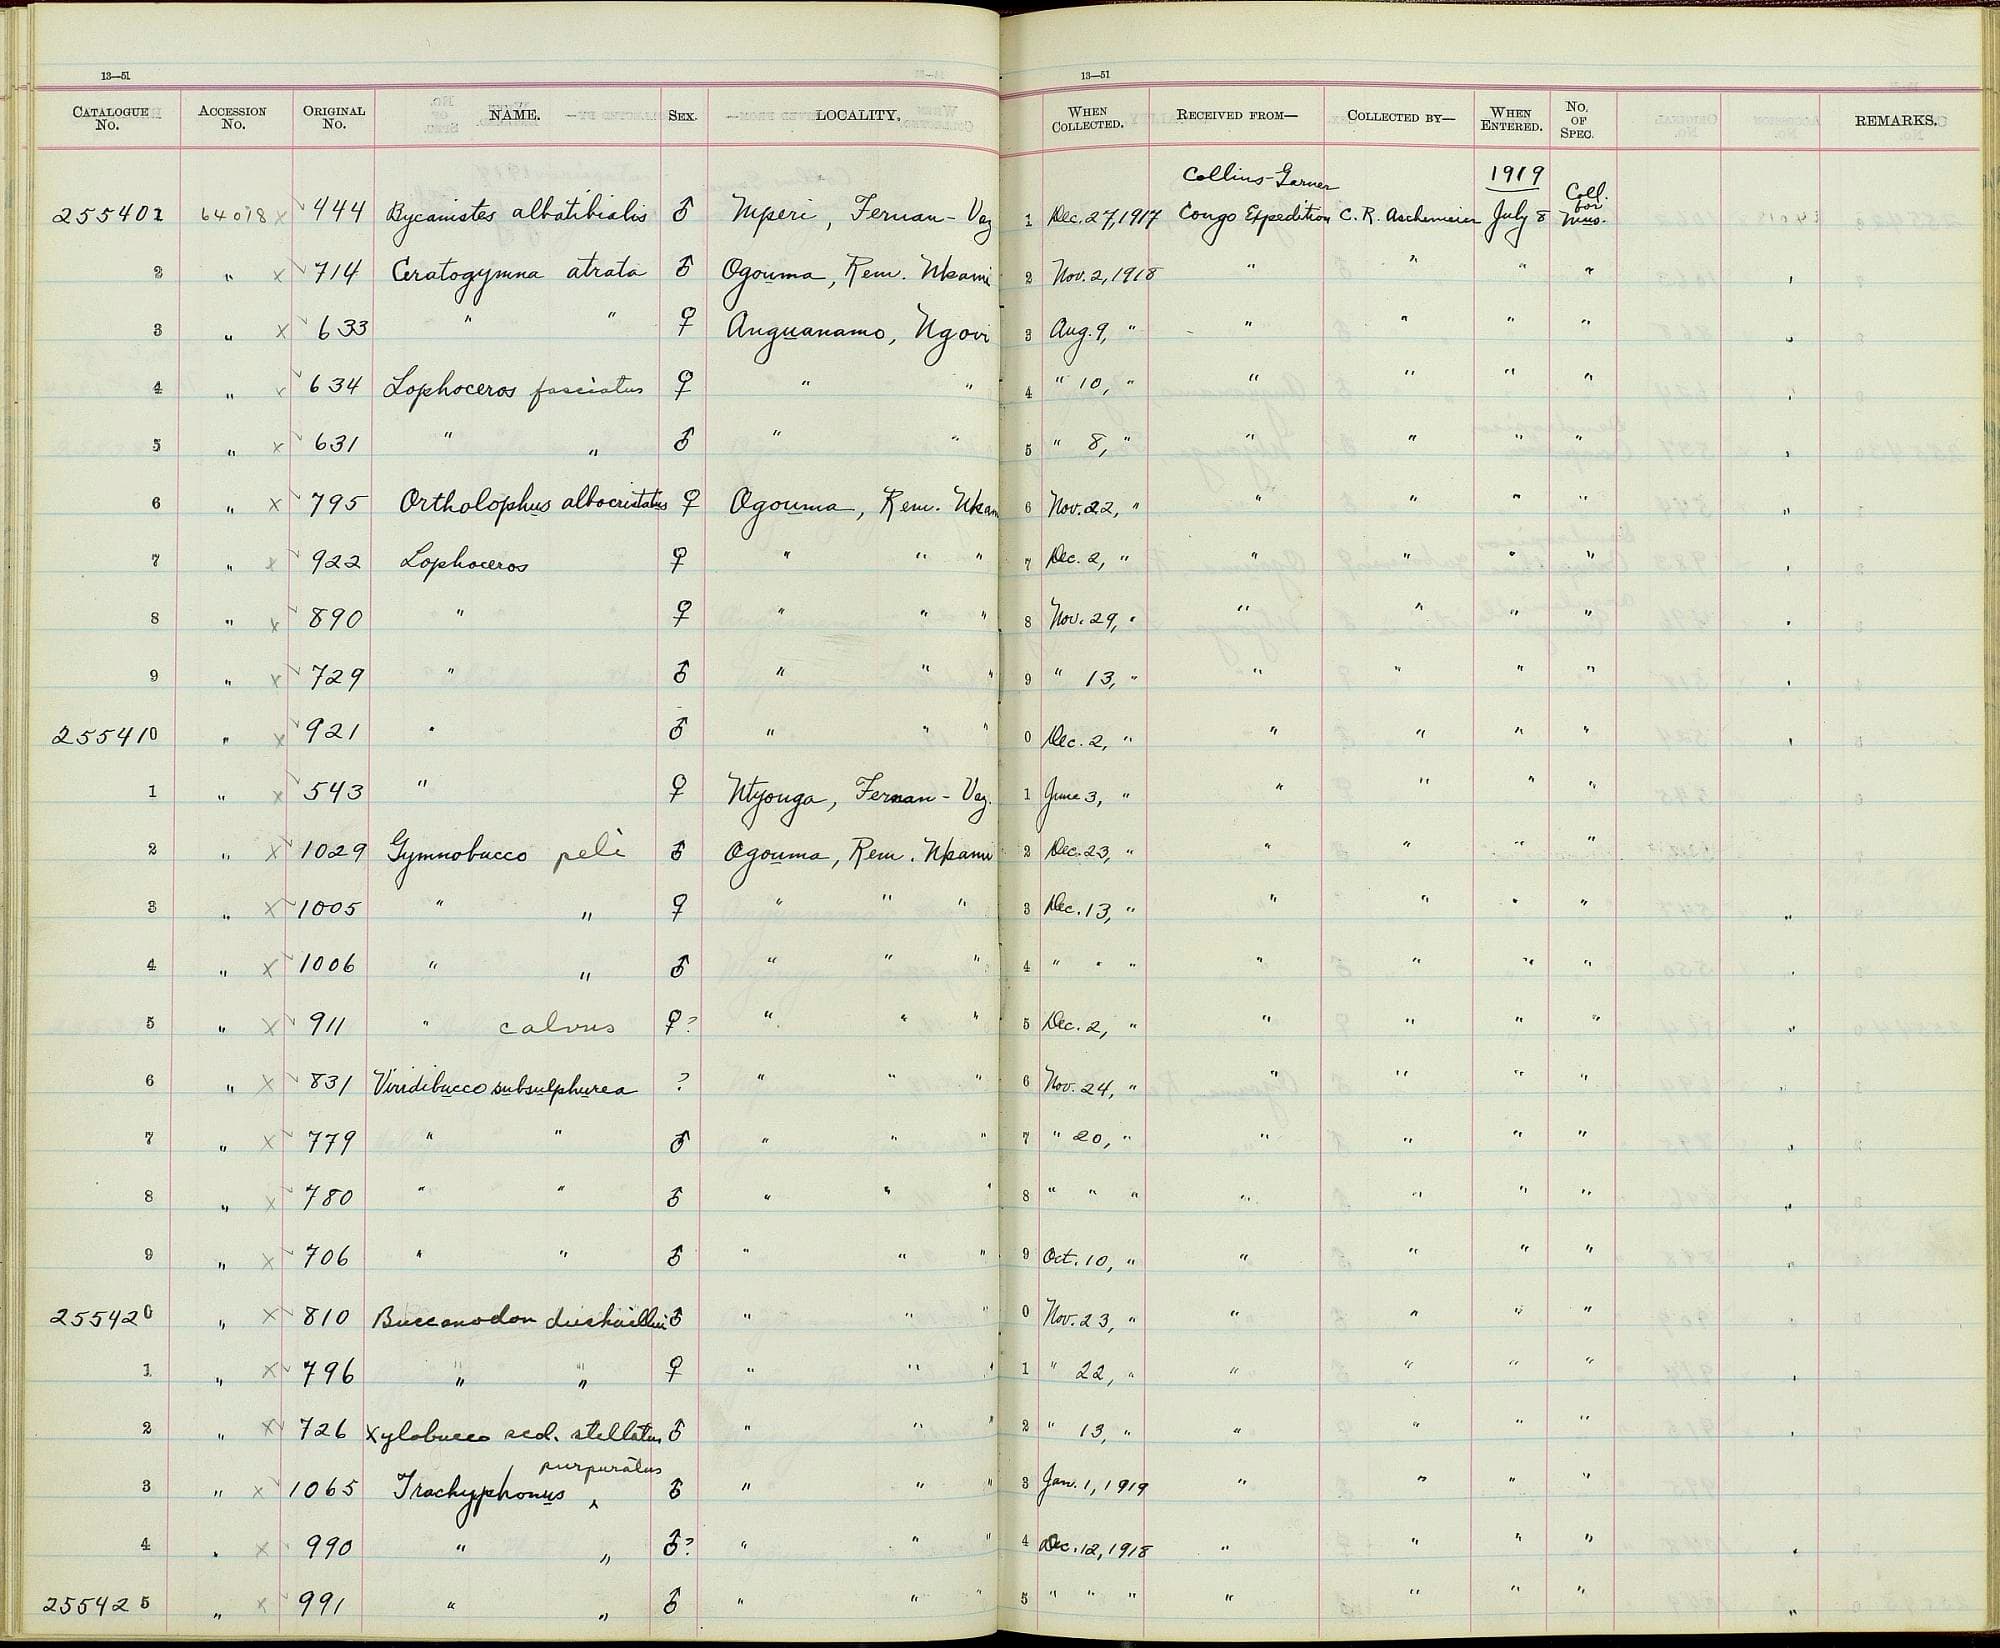 13—51
13—51
CATALOGUE No. ACCESSION No. ORIGINAL No. NAME. SEX. LOCALITY. WHEN COLLECTED. RECEIVED FROM— COLLECTED BY— WHEN ENTERED. NO. OF SPEC. REMARKS.
Collins-Garner 1919 Coll. for
255401 64018 x ✓ 444 Bycanistes albotibialis ♂ Mperi, Fernan-Vaz 1 Dec. 27, 1917 Congo Expedition C. R. Aschemeier July 8 Mus.
2 " x ✓ 714 Ceratogymna atrata ♂ Ogouma, Rem. Nkami 2 Nov. 2, 1918 " " " "
3 " x 633 " " ♀ Anguanamo, Ngovi 3 Aug. 9, " " " " "
4 " x ✓ 634 Lophoceros fasciatus ♀ " " 4 " 10, " " " " "
5 " x ✓ 631 " " ♂ " " 5 " 8, " " " " "
6 " x ✓ 795 Ortholophus albocristatus ♀ Ogouma, Rem. Nkam 6 Nov. 22, " " " " "
7 " x ✓ 922 Lophoceros ♀ " " " 7 Dec. 2, " " " " "
8 " x ✓ 890 " ♀ " " " 8 Nov. 29, " " " " "
9 " x ✓ 729 " ♂ " " " 9 " 13, " " " " "
255410 " x ✓ 921 " ♂ " " " 0 Dec. 2, " " " " "
1 " x ✓ 543 " ♀ Ntyonga, Fernan-Vaz. 1 June 3, " " " " "
2 " x ✓ 1029 Gymnobucco peli ♂ Ogouma, Rem. Nkami 2 Dec. 23, " " " " "
3 " x ✓ 1005 " " ♀ " " " 3 Dec. 13, " " " " "
4 " x ✓ 1006 " " ♂ " " " 4 " " " " " " "
5 " x ✓ 911 " calvus ♀? " " " 5 Dec. 2, " " " " "
6 " x ✓ 831 Viridibucco subsulphurea ? " " " 6 Nov. 24, " " " " "
7 " x ✓ 779 " " ♂ " " " 7 " 20, " " " " "
8 " x ✓ 780 " " ♂ " " " 8 " " " " " " "
9 " x ✓ 706 " " ♂ " " " 9 Oct. 10, " " " " "
255420 " x ✓ 810 Buccanodon duchaillui ♂ " " " 0 Nov. 23, " " " " "
1 " x ✓ 796 " " ♀ " " " 1 " 22, " " " " "
2 " x ✓ 726 Xylobucco scol. stellatus ♂ " " " 2 " 13, " " " " "
purpuratus
3 " x ✓ 1065 Trachyphonus ‸ ♂ " " " 3 Jan. 1, 1919 " " " "
4 " x 990 " " ♂? " " " 4 Dec. 12, 1918 " " " "
255425 " x ✓ 991 " " ♂ " " " 5 " " " " " " "